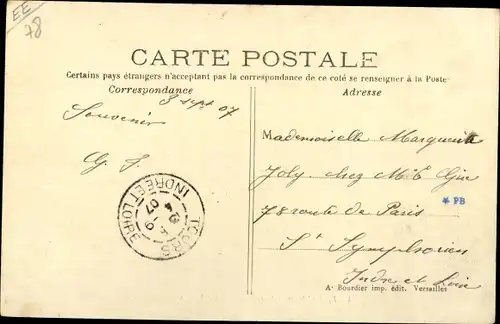 EE
78
CARTE POSTALE
Certains pays étrangers n'acceptant pas la correspondance de ce coté se renseigner à la Poste
Correspondance
Adresse
3 Sept 07
Souvenir
G. J.
Mademoiselle Marguerite
Joly chez Me
78 route de Paris
* PB
St Symphorien
Indre et Loire
TOURS
INDRE ET LOIRE
A. Bourdier imp. édit. Versailles